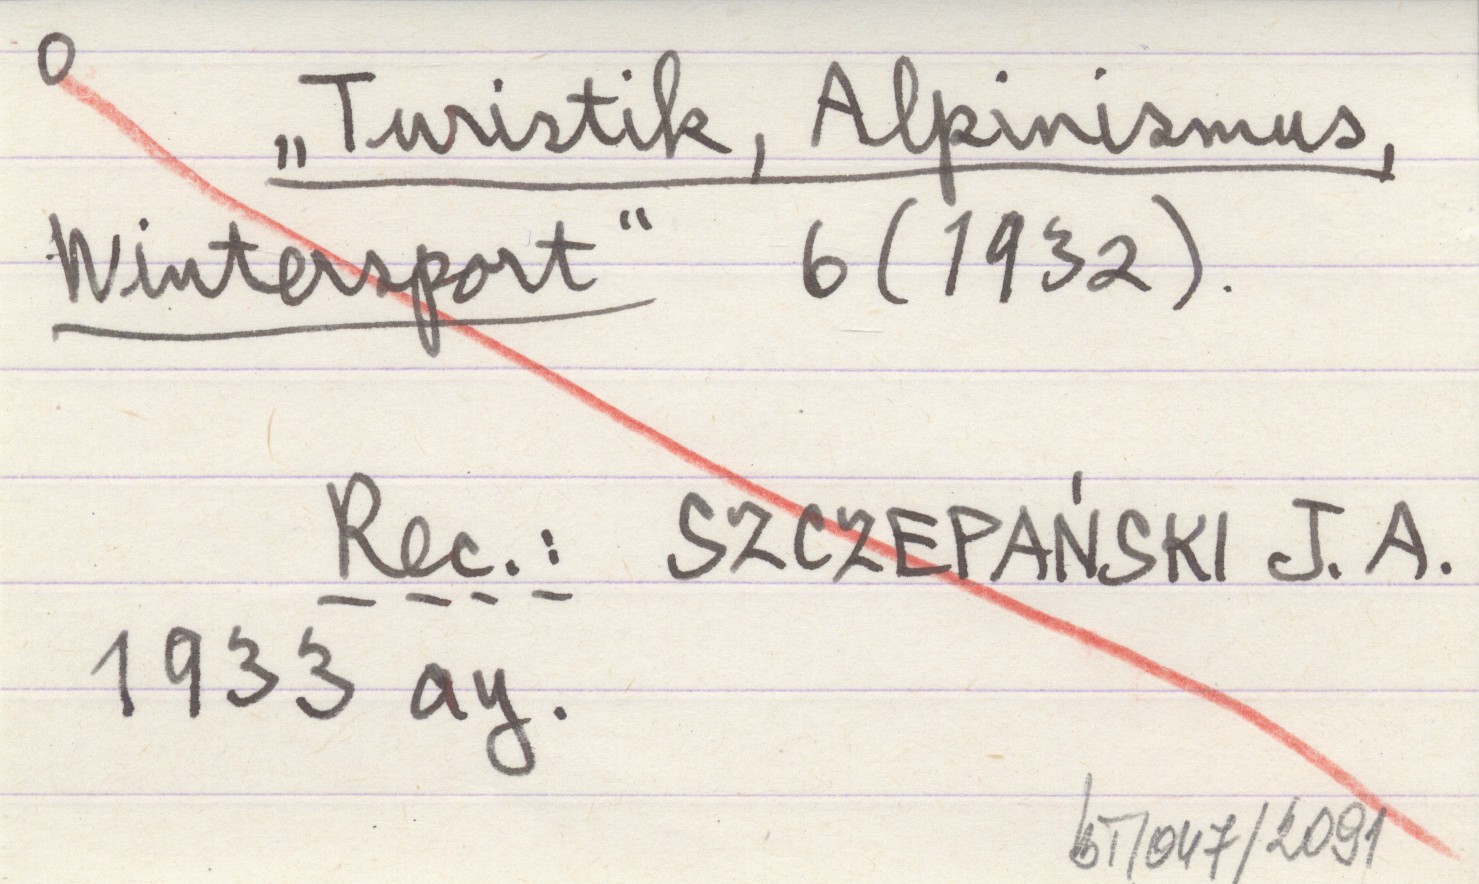 O
„Turistik, Alpinismus,
Wintersport“ 6 (1932).
Rec.: SZCZEPAŃSKI J. A.
1933 ay.
bT/047/2091